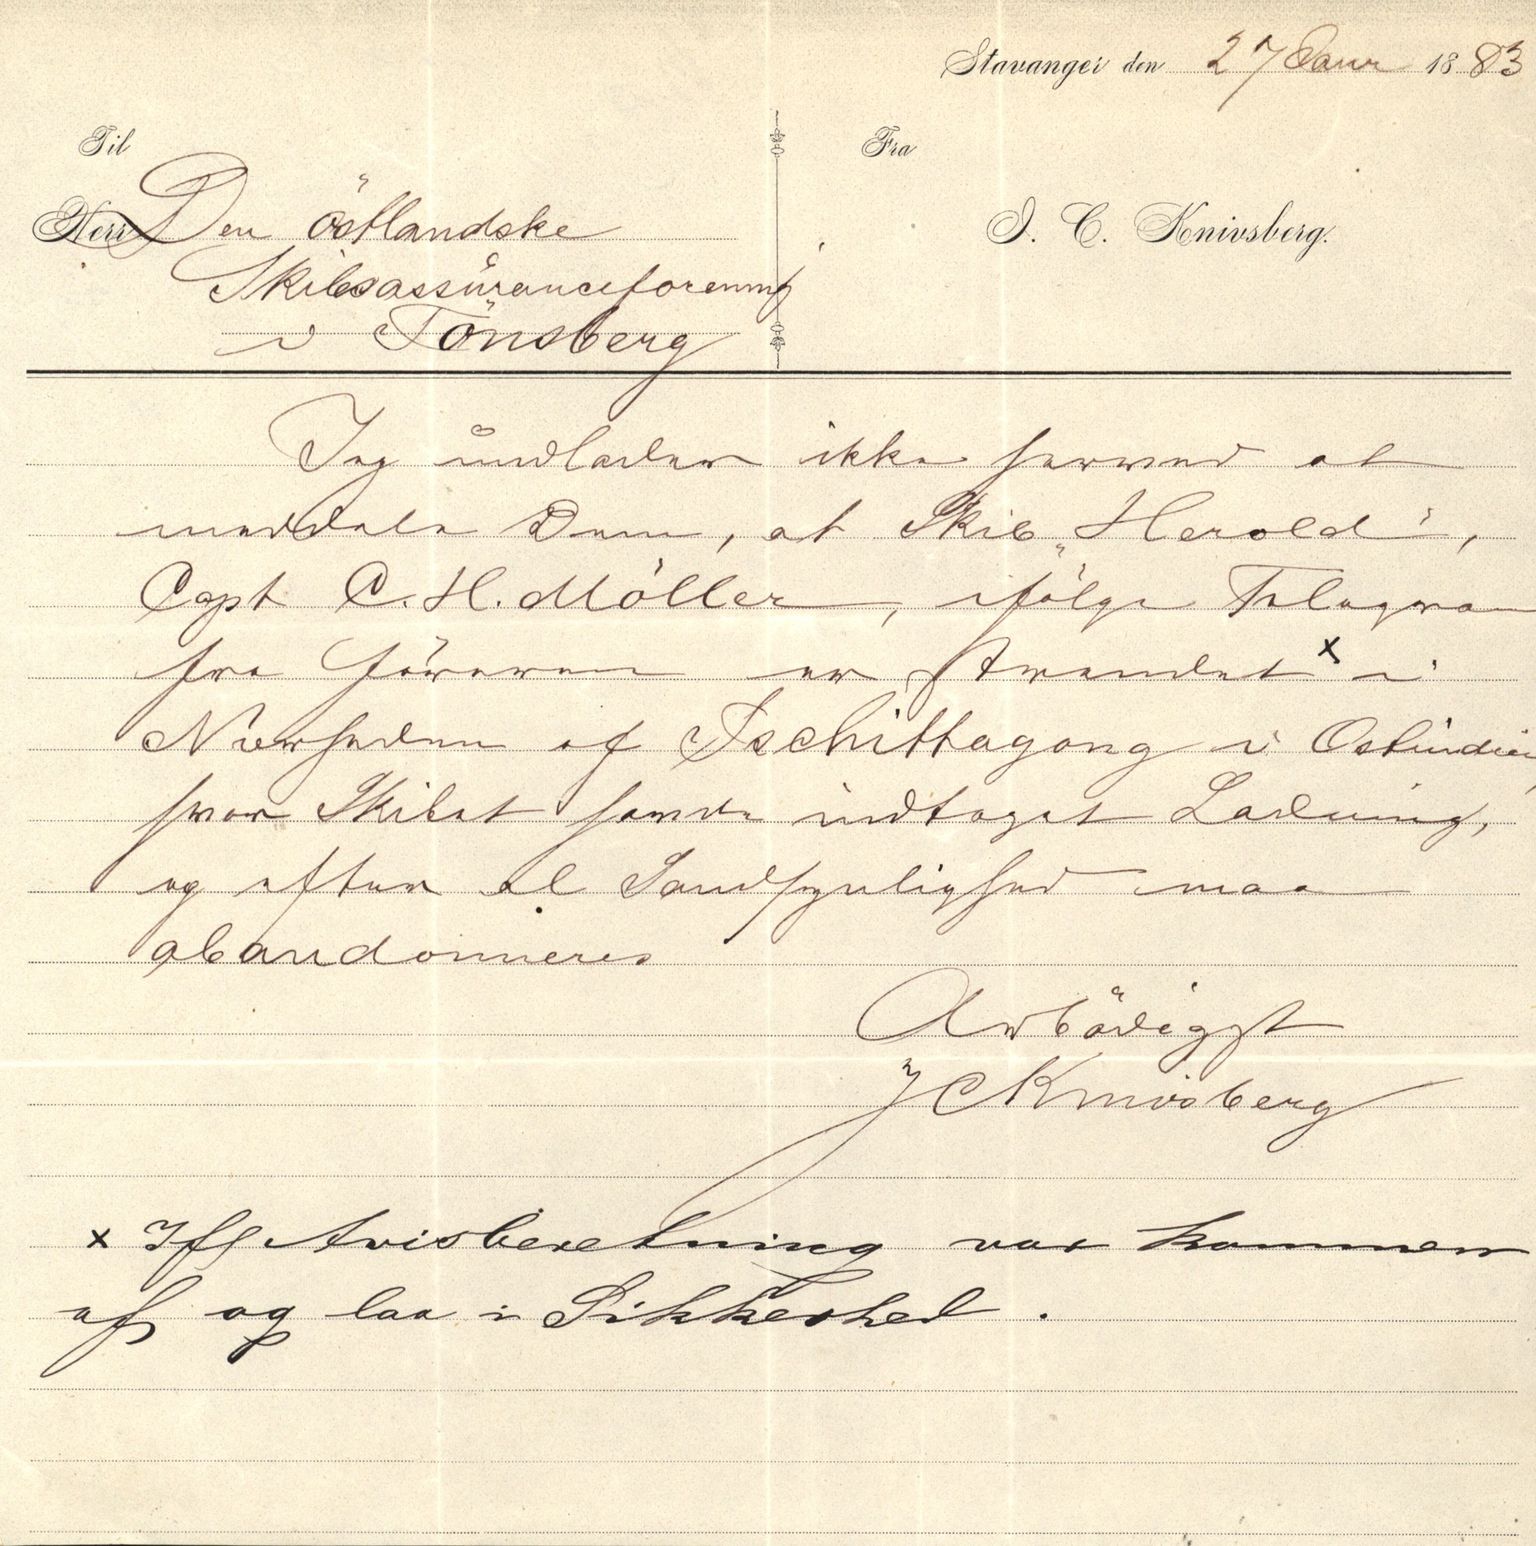 Stavanger den 27 Janr 1883
Til
Fra
Herr Den östlandske
J. C. Knivsberg.
Skibsassuranceforening
i Tönsberg
Jeg undlader ikke herved at
meddele Dem, at Skib „Herold",
Capt C. H. Möller, ifölge Telegram
fra Föreren er strandet x i
Nærheden af Tschittagong i Ostindien,
hvor Skibet havde indtaget Ladning,
og efter al Sandsynlighed maa
abandonneres
Ærbödigst
J C Knivsberg
x Ifl Avisberetning var kommen
af og laa i Sikkerhed.